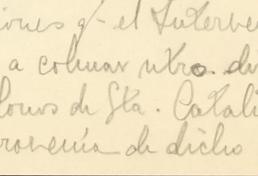 iones q- el Interve
a colmar ntro. di
lonos de Sta. Catali
rovenía de dicho